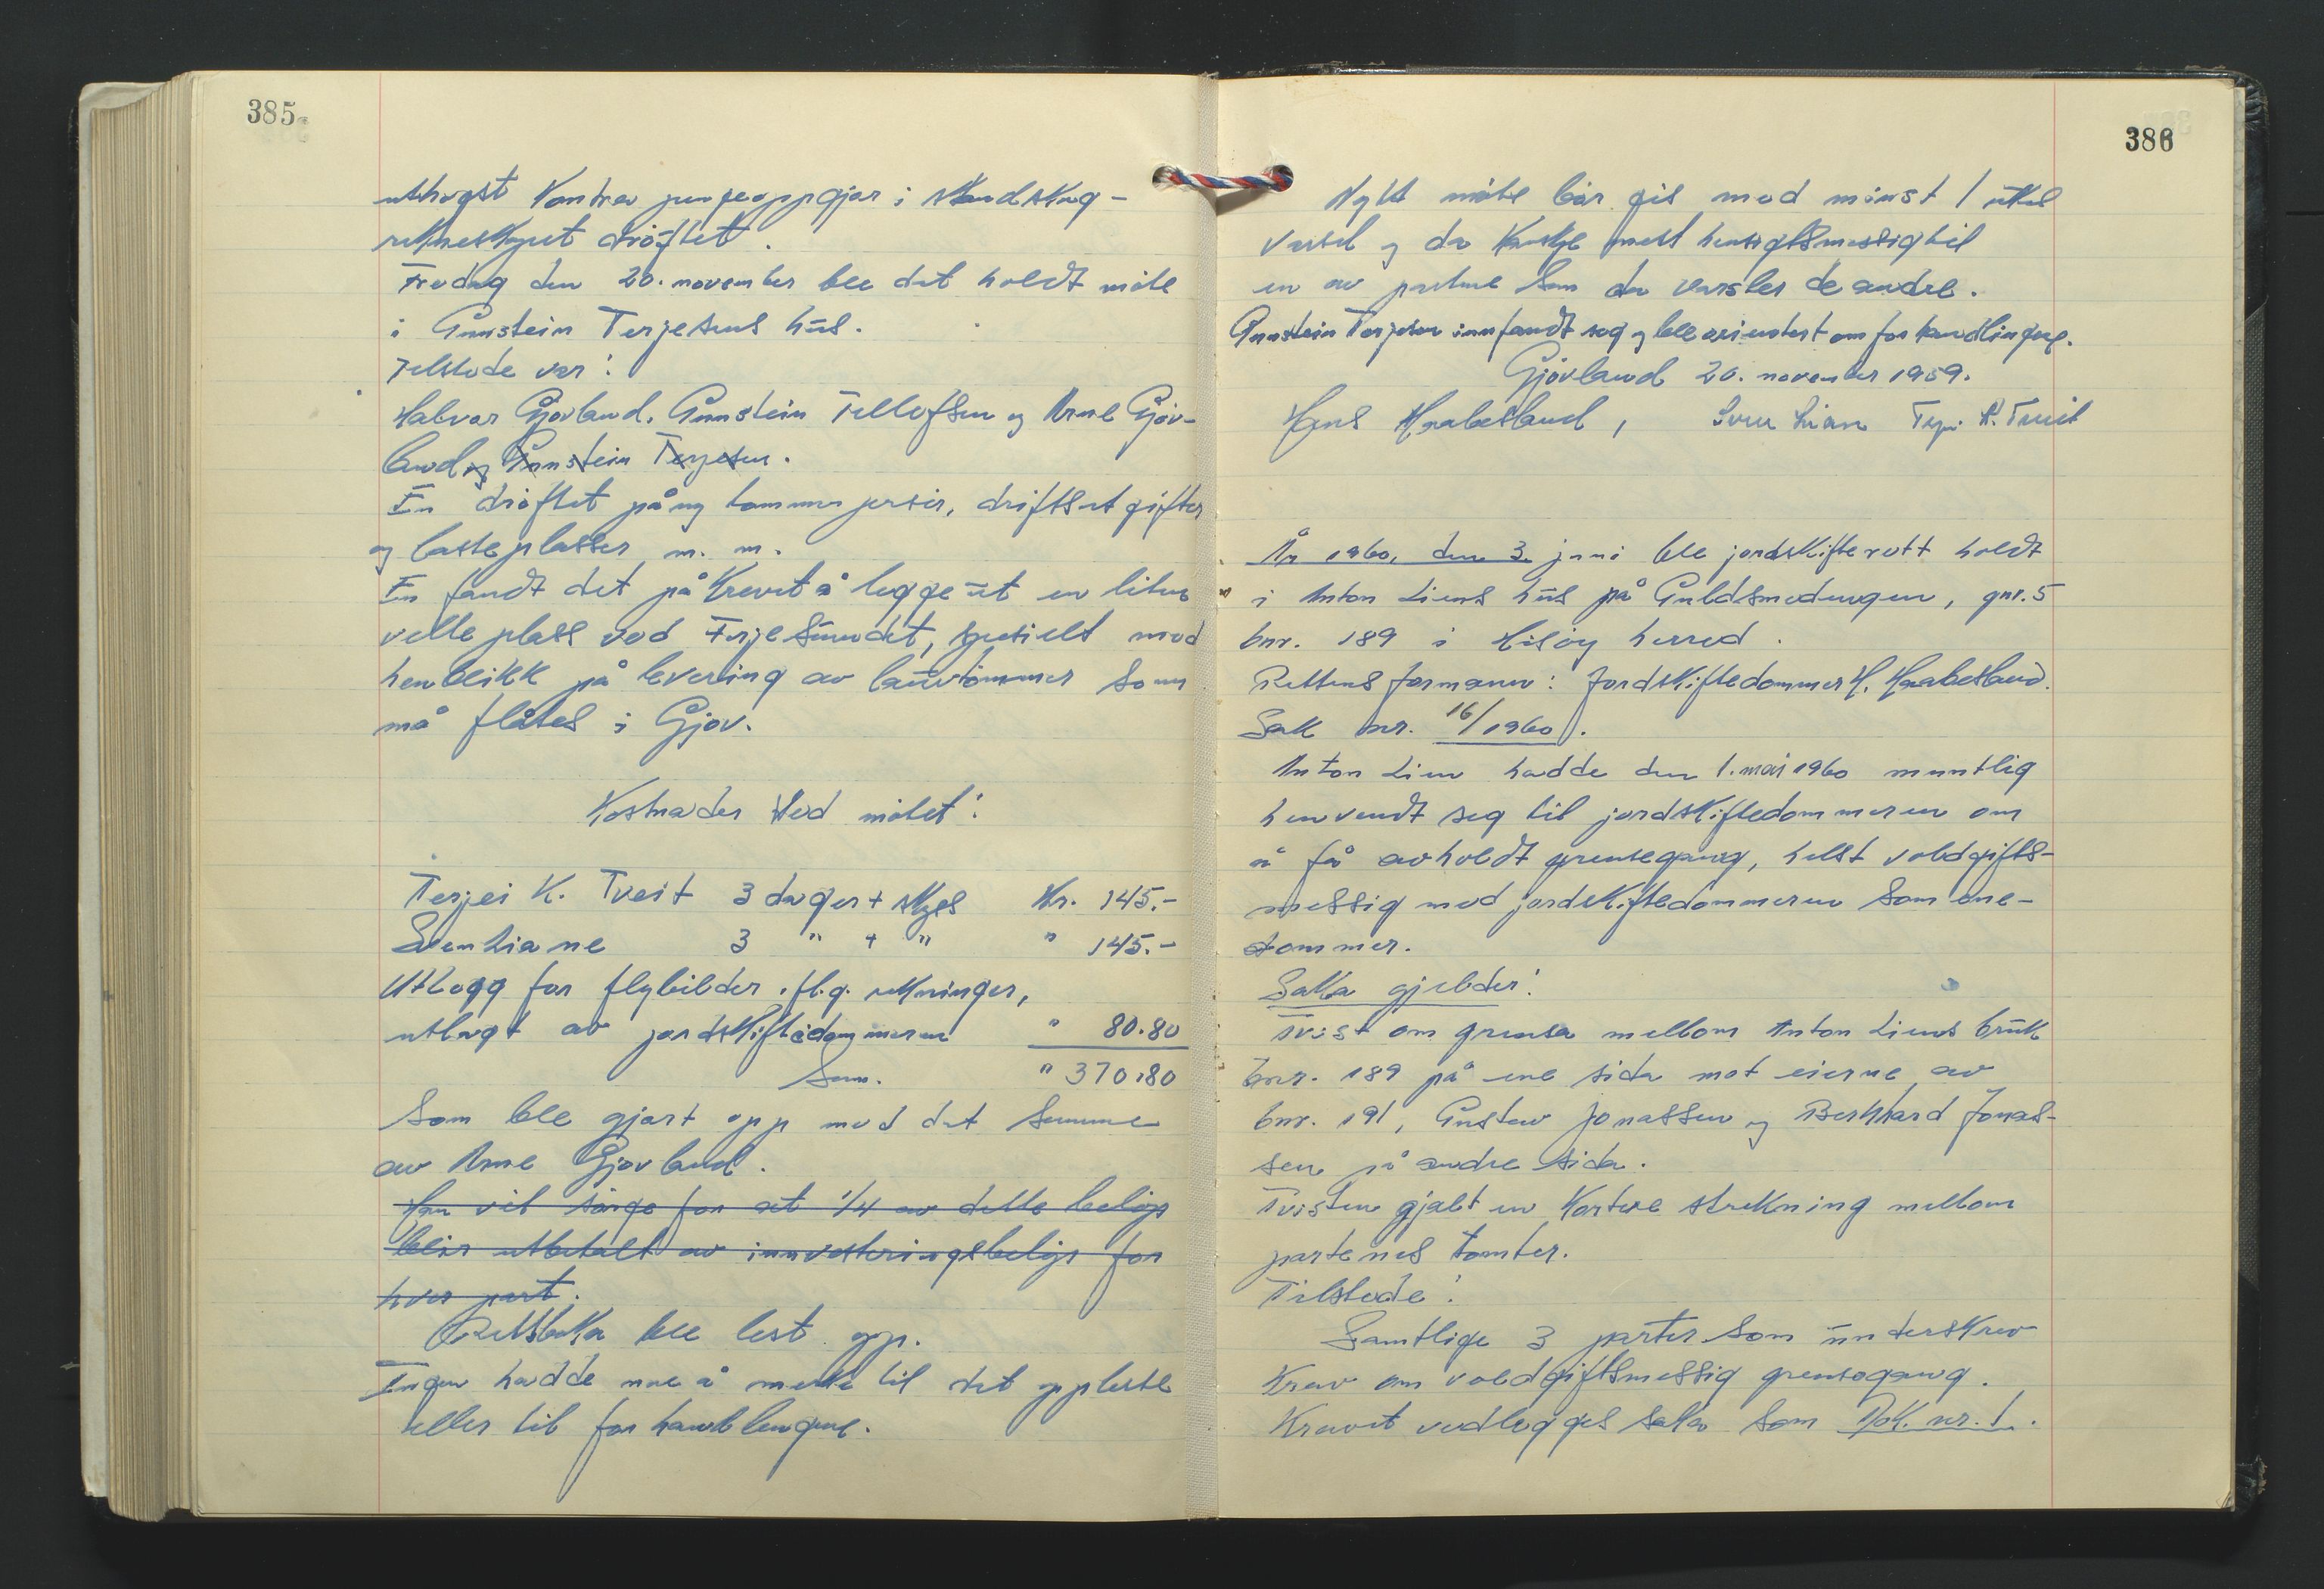 385
uthogst kontra pengeoppgjør i
drøftet.
Fredag den 20. november ble det holdt møte
i Gunstein Terjesens hus.
Tilstede var:
Halvor Gjøvland, Gunstein Tellefsen og Arne Gjøv-
land og Gunstein Terjesen.
En drøftet på ny tømmerpriser, driftsutgifter
og lasteplasser m. m.
En fandt det påkrevet å legge ut en liten
velteplass ved Terjesundet, spesielt med
henblikk på levering av lauvtømmer som
må fløtes i Gjøv.
Kostnader ved møtet:
Terjei K. Tveit 3 dager + skyss Kr. 145.-
Sven Liane 3 " + " " 145.-
Utlegg for flybilder ifl.g. rekninger,
utlagt av jordskiftedommeren " 80.80
Sum. " 370.80
Som ble gjort opp med det samme
av Arne Gjøvland.
Han vil sørge for at 1/4 av dette beløp
blir utbetalt av innvesteringsbeløp for
hver part.
Rettsboka ble lest opp.
Ingen hadde noe å merke til det oppleste
eller til forhandlingene.
386
Nytt møte bør gis med minst 1 ukes
varsel og da kanskje mest hensigtsmessig til
en av partene som da varsler de andre.
Gunstein Terjesen innfandt seg og ble orientert om forhandlingene.
Gjøvland 20. november 1959.
Hans Haabesland, Sven Liane Terjei K. Tveit
År 1960, den 3. juni ble jordskifterett holdt
i Anton Liens hus på Guldsmedengen, gnr. 5
bnr. 189 i Hisøy herred.
Rettens formann: Jordskiftedommer H. Haabesland.
Sak nr. 16/1960.
Anton Lien hadde den 1. mai 1960 muntlig
henvendt seg til jordskiftedommeren om
å få avholdt grensegang, helst voldgifts-
messig med jordskiftedommeren som ene-
dommer.
Saka gjelder:
Tvist om grensa mellom Anton Liens bruk
bnr. 189 på ene sida mot eierne av
bnr. 191, Gustav Jonassen og Bernhard Jonas-
sen på andre sida.
Tvisten gjalt en kortere strekning mellom
partenes tomter.
Tilstede:
Samtlige 3 parter som underskrev
krav om voldgiftsmessig grensegang.
Kravet vedlegges saka som Dok. nr. 1.